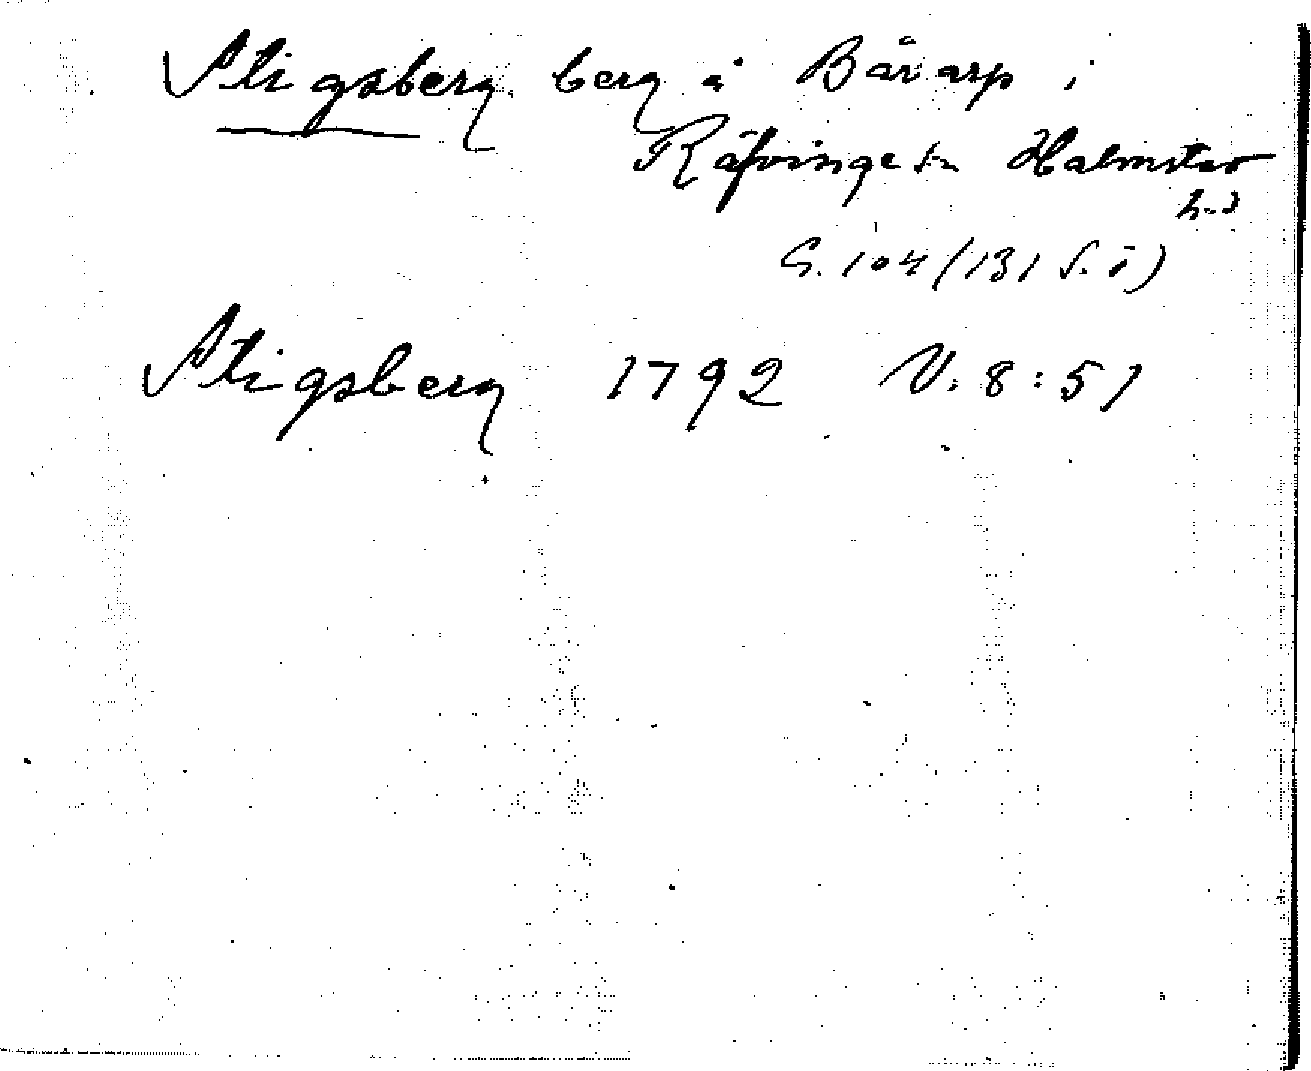 Stigsberg berg å Bårarp i
Räfvinge sn Halmstad
h-d
G. 104 (131 S. ö)
Stigsberg 1792 V. 8:51